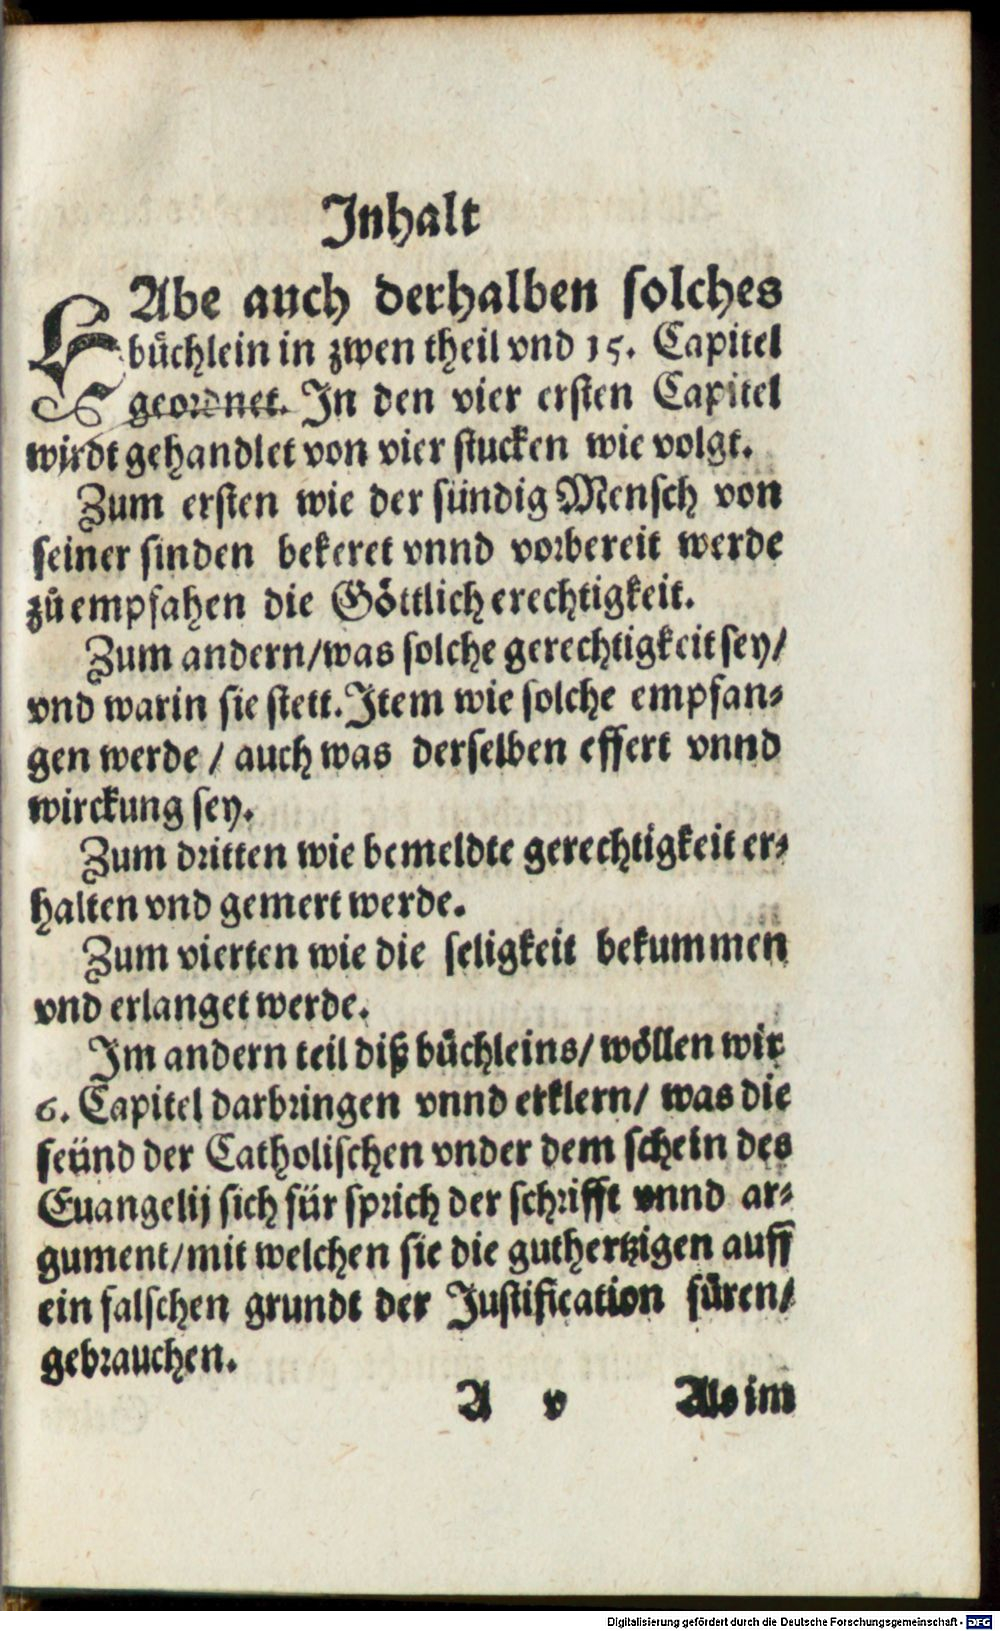 Inhalt
HAbe auch derhalben solches
büchlein in zwen theil vnd 15. Capitel
geordnet. In den vier ersten Capitel
wirdt gehandlet von vier stucken wie volgt.
Zum ersten wie der sündig Mensch von
seiner sinden bekeret vnnd vorbereit werde
zů empfahen die Göttlich erechtigkeit.
Zum andern/was solche gerechtigkeit sey/
vnd warin sie stett. Item wie solche empfan⸗
gen werde / auch was derselben effert vnnd
wirckung sey.
Zum dritten wie bemeldte gerechtigkeit er⸗
halten vnd gemert werde.
Zum vierten wie die seligkeit bekummen
vnd erlanget werde.
Im andern teil diß büchleins/ wöllen wir
6. Capitel darbringen vnnd erklern/ was die
feünd der Catholischen vnder dem schein des
Euangelij sich für sprich der schrifft vnnd ar⸗
gument/mit welchen sie die guthertzigen auff
ein falschen grundt der Justification füren/
gebrauchen.
A v Als im
Digitalisierung gefördert durch die Deutsche Forschungsgemeinschaft - DFG